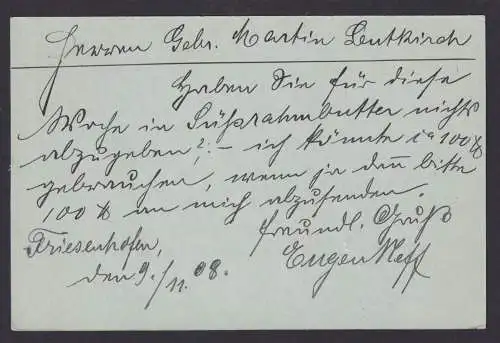 Herren Gebr. Martin Leutkirch
Haben Sie für diese
Woche in Süßrahmbutter nichts
abzugeben?; – ich könnte ca 100 ℔
gebrauchen, wenn ja dan̄ bitte
100 ℔ an mich abzusenden.
Friesenhofen,
freundl. Gruß
den 9./11. 08.
Eugen Neff